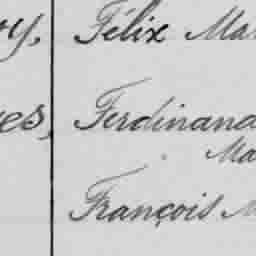 Félix Ma
Ferdinand
Ma
François M